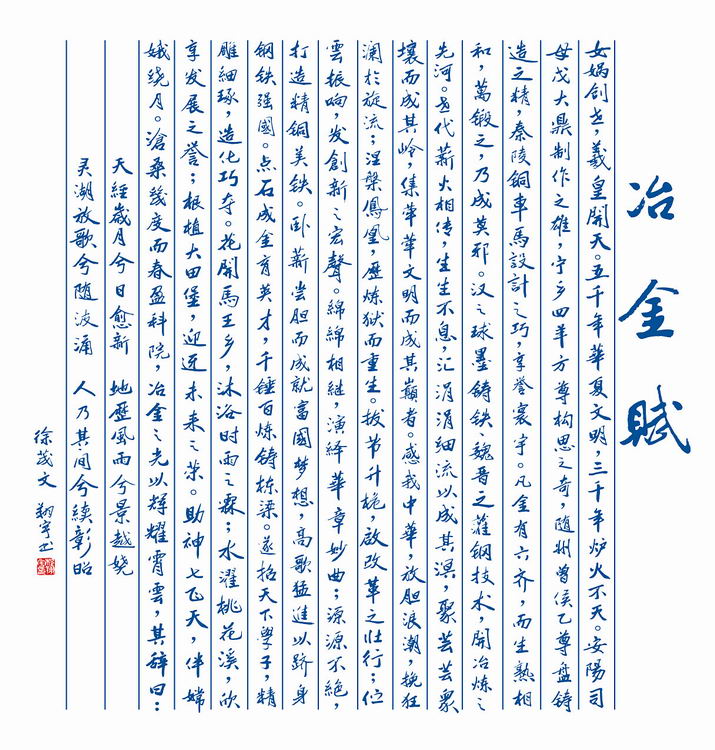 冶金赋
女娲创世，羲皇開天。五千年華夏文明，三千年炉火不夭。安陽司
母戊大鼎制作之雄，宁乡四羊方尊构思之奇，随州曾侯乙尊盘铸
造之精，秦陵铜車馬設計之巧，享誉寰宇。凡金有六齐，而生熟相
和，萬鍛之，乃成莫邪。汉之球墨铸铁、魏晋之灌钢技术，開冶炼之
先河。世代薪火相传，生生不息，汇涓涓细流以成其溟，聚芸芸眾
壤而成其岭，集苹華文明而成其巅者。感我中華，放胆浪潮，挽狂
澜於旋流；涅槃鳳凰，歷炼狱而重生。拔节升桅，啟改革之壮行；位
雲振响，发創新之宏聲。綿綿相继，演绎華章妙曲；源源不絕，
打造精铜美铁。卧薪尝胆而成就富國梦想，高歌猛進以跻身
钢铁强國。点石成金育英才，千锤百炼铸栋梁。遂招天下學子，精
雕細琢，造化巧夺。花開馬王乡，沐浴时雨之霖；水濯桃花溪，欣
享发展之誉；根植大田堡，迎迓未来之荣。助神七飞天，伴嫦
娥绕月。滄桑幾度而春盈科院，冶金之光以辉耀霄雲，其辞曰：
天經歲月兮日愈新 地歷風雨兮景越娆
灵湖放歌兮随波涌 人乃其间兮續彰昭
徐茂文 翔宇书